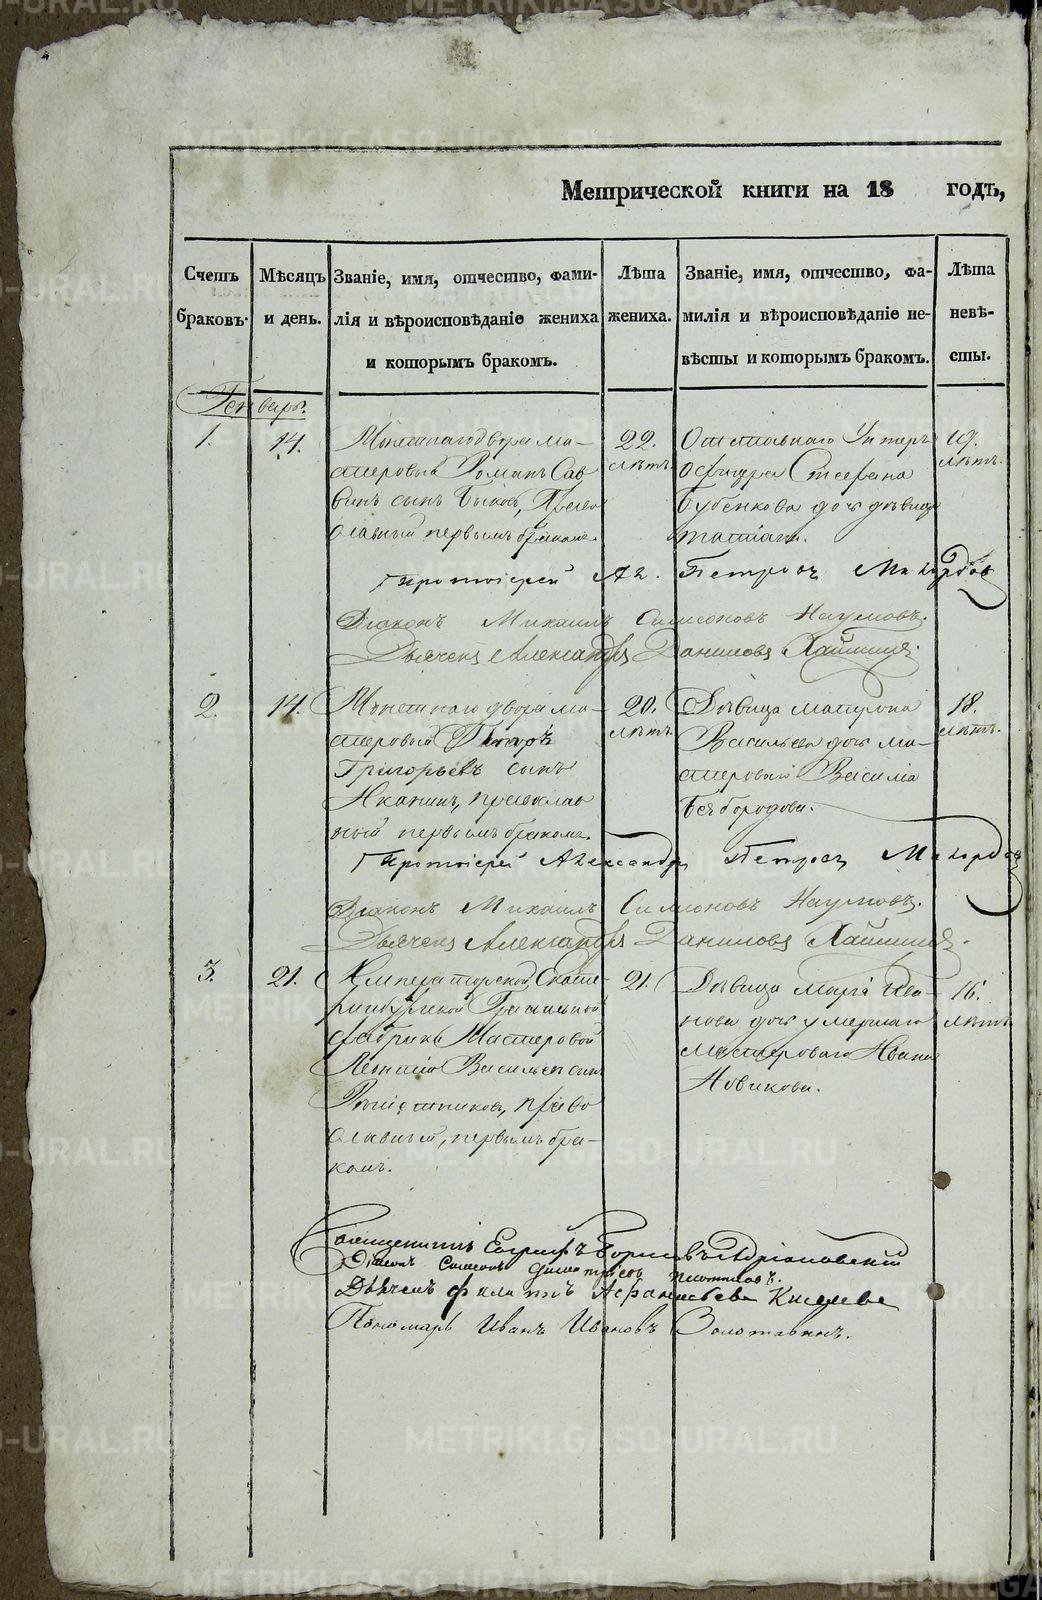 Метрической книги на 18 годъ,
Счетъ браковъ.
Мѣсяцъ и день.
Званіе, имя, отчество, фами-
лія и вѣроисповѣданіе жениха
и которымъ бракомъ.
Лѣта
жениха.
Званіе, имя, отчество, фа-
милія и вѣроисповѣданіе не-
вѣсты и которымъ бракомъ.
Лѣта
невѣ-
сты.
Генварь.
1.
14.
Монетнаго двора ма-
стеровый Романъ Сав
винъ сынъ Быковъ, Право
славный первымъ бракомъ.
22.
лѣтъ
Отставнаго Унтеръ
Офицера Стефана
Бубенкова дочь дѣвица
19.
лѣтъ.
Протоіерей Ал. Петровъ
Діаконъ Михаилъ Симеоновъ Наумовъ.
Дьячекъ Александръ Даниловъ
2.
14.
Монетнаго двора ма-
стеровый
Григорьевъ сынъ
православ
ный первымъ бракомъ.
20.
лѣтъ
Дѣвица Матрона
Васильева дочь ма-
стероваго Василія
Безбородова.
18.
лѣтъ.
Протоіерей Александръ Петровъ
Діаконъ Михаилъ Симеоновъ Наумовъ.
Дьячекъ Александръ Даниловъ
3.
21.
Императорской Екате-
ринбургской Гранильной
фабрики Мастеровой
Леонтій Васильевъ сынъ
право
славный, первымъ бра-
комъ.
21.
Дѣвица Марія Ива-
нова дочь умершаго
мастероваго Ивана
Новикова.
16.
лѣтъ
Священникъ
Діаконъ Симеонъ Димитріевъ
Дьячекъ Афанасьевъ Киселевъ
Пономарь Иванъ Ивановъ Золотавинъ.
METRIKI.GASO-URAL.RU